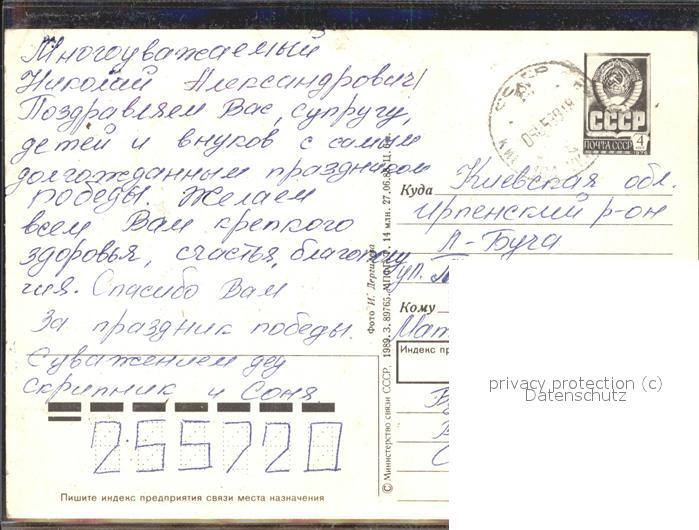 Многоуважаемый
Николай Александрович!
Поздравляем Вас, супругу,
детей и внуков с самым
долгожданным праздником
Победы. Желаем
всем Вам крепкого
здоровья, счастья, благополу
чия. Спасибо Вам
За праздник победы.
С уважением деду
Скрипник и Соня
255720
Пишите индекс предприятия связи места назначения
Фото И. Дергилёва
© Министерство связи СССР. 1989. З. 89765. МПФГ. 14 млн. 27.06.88.
СССР
СССР
ПОЧТА СССР 4
Куда Киевская обл.
Ирпенский р-он
п-Буча
ул.
Кому
Мат
Индекс пр
privacy protection (c)
Datenschutz